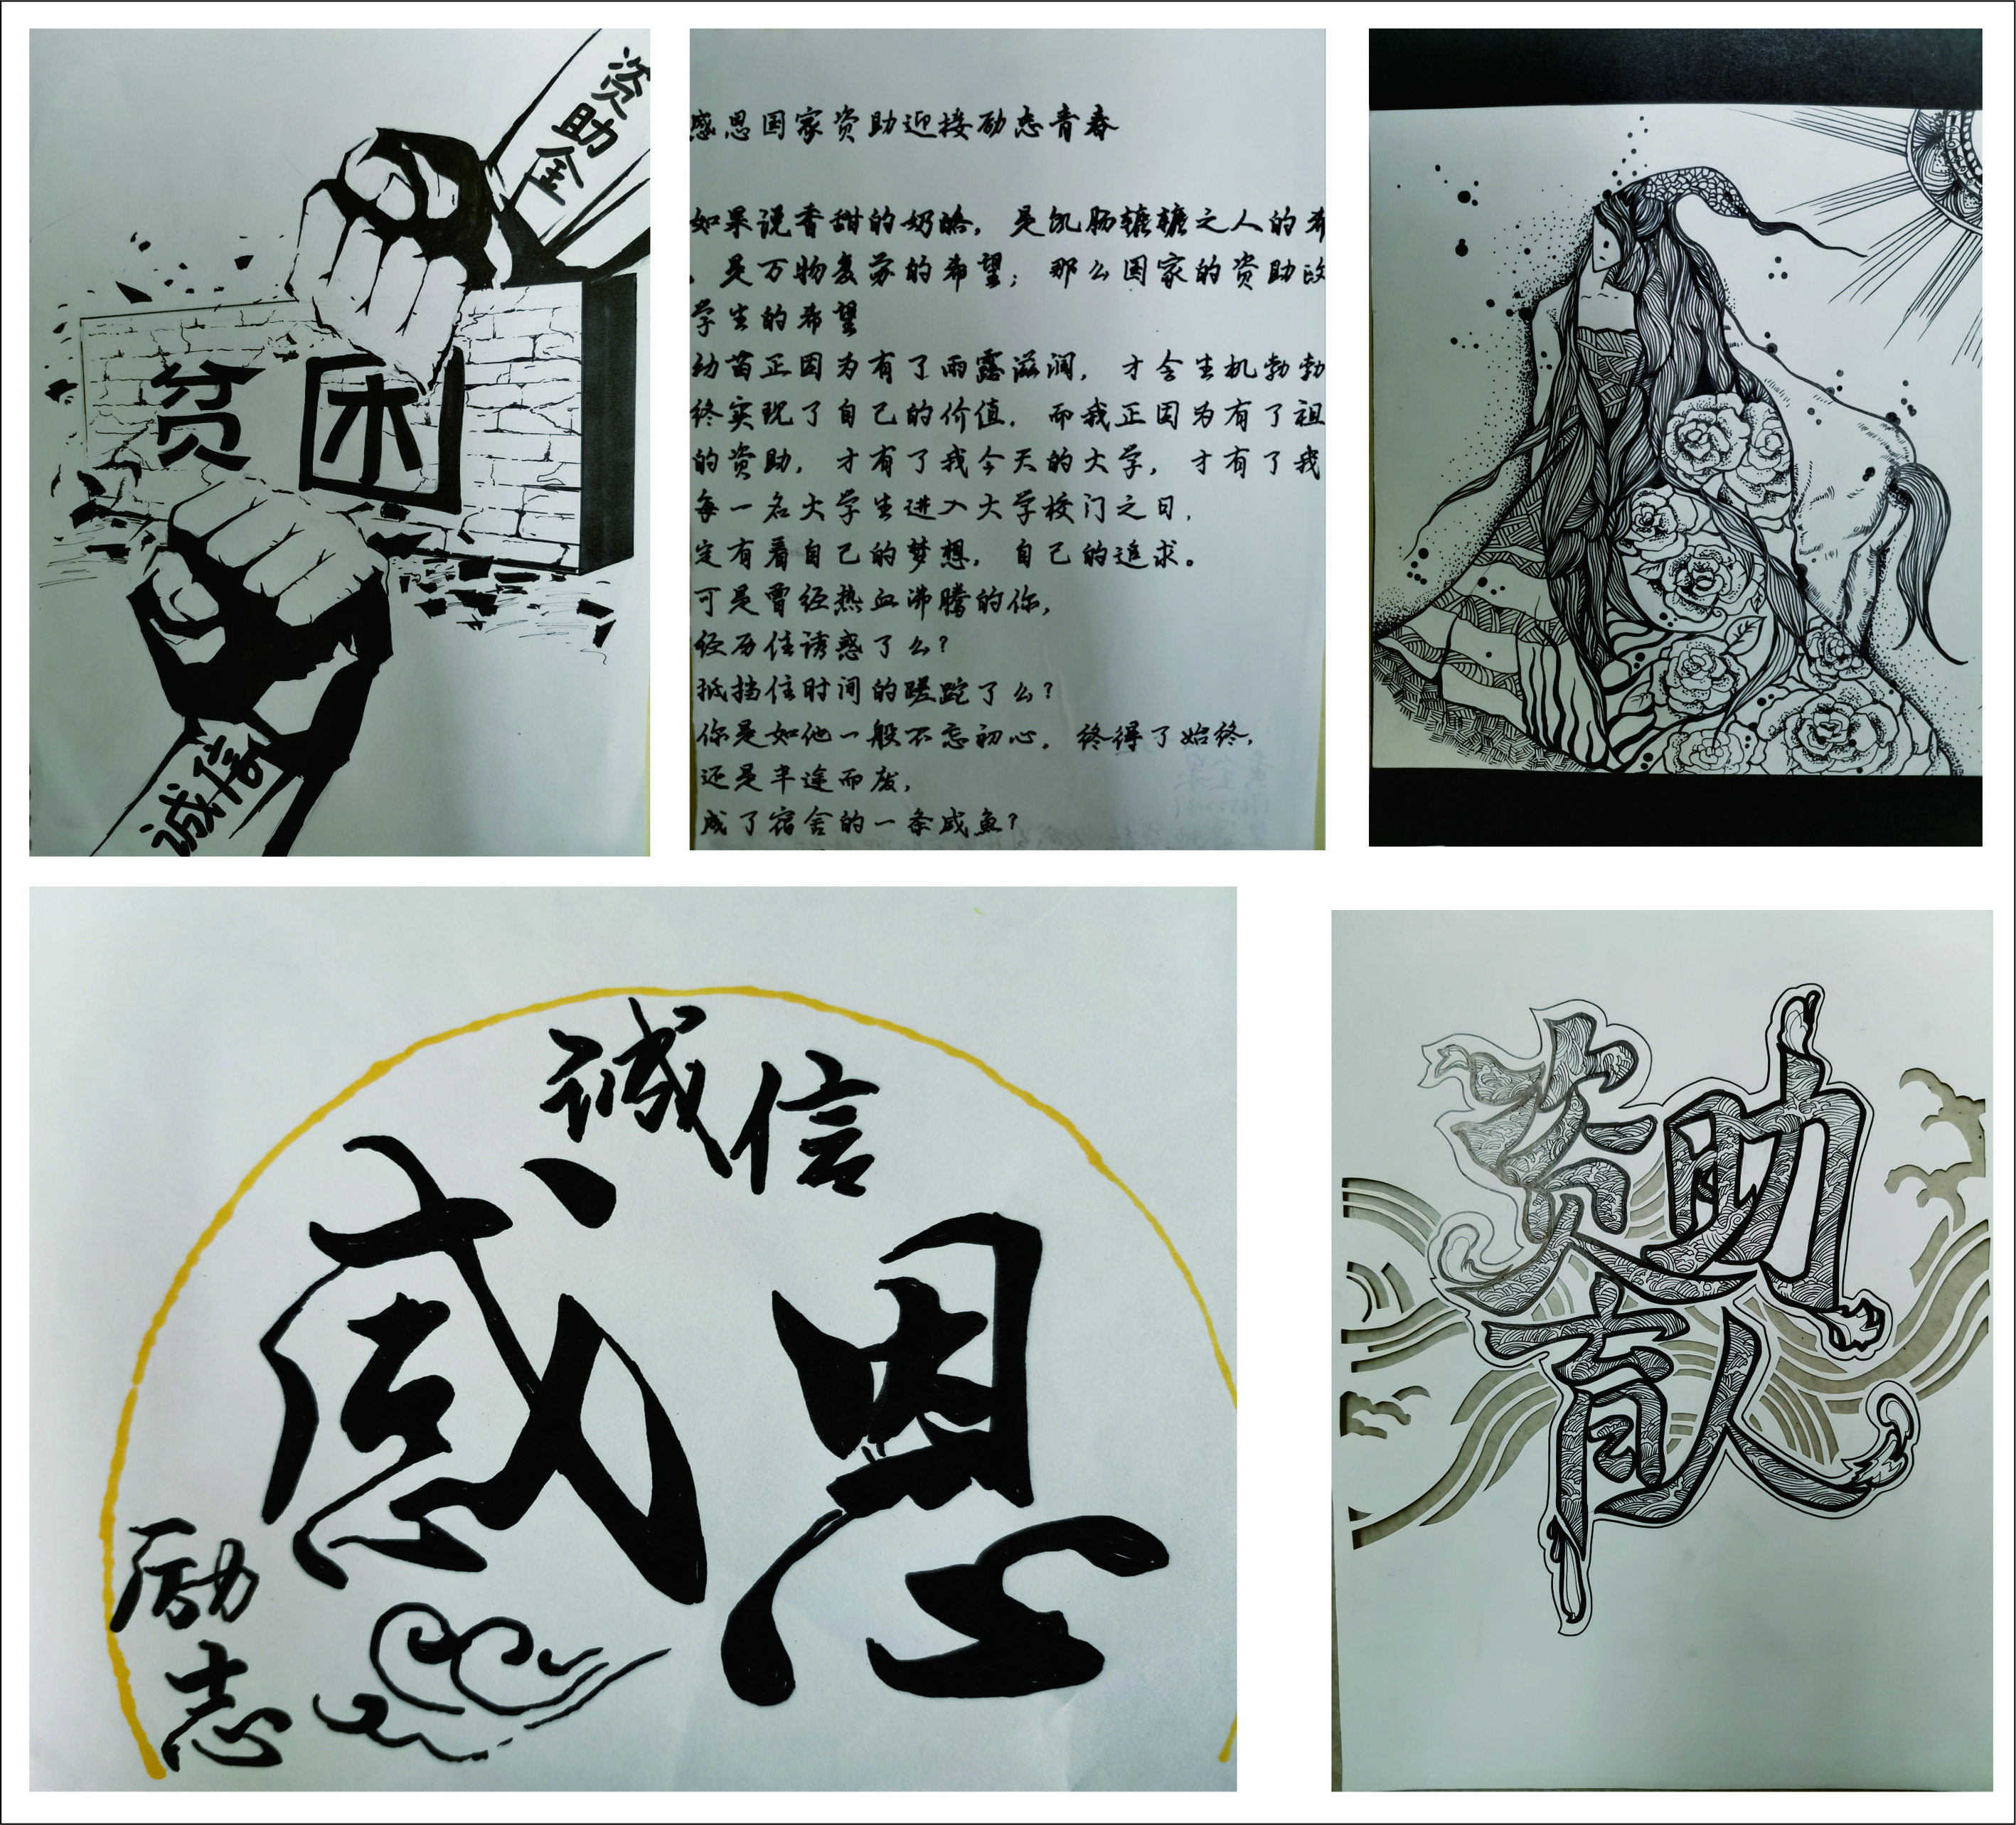 资助金
贫困
诚信
感恩国家资助迎接励志青春
如果说香甜的奶酪，是饥肠辘辘之人的希
，是万物复苏的希望；那么国家的资助政
学生的希望
幼苗正因为有了雨露滋润，才会生机勃勃
终实现了自己的价值．而我正因为有了祖
的资助，才有了我今天的大学，才有了我
每一名大学生进入大学校门之日，
定有着自己的梦想，自己的追求。
可是曾经热血沸腾的你，
经历住诱惑了么？
抵挡住时间的蹉跎了么？
你是如他一般不忘初心，终得了始终，
还是半途而废，
成了宿舍的一条咸鱼？
诚信
感恩
励志
资助
育人